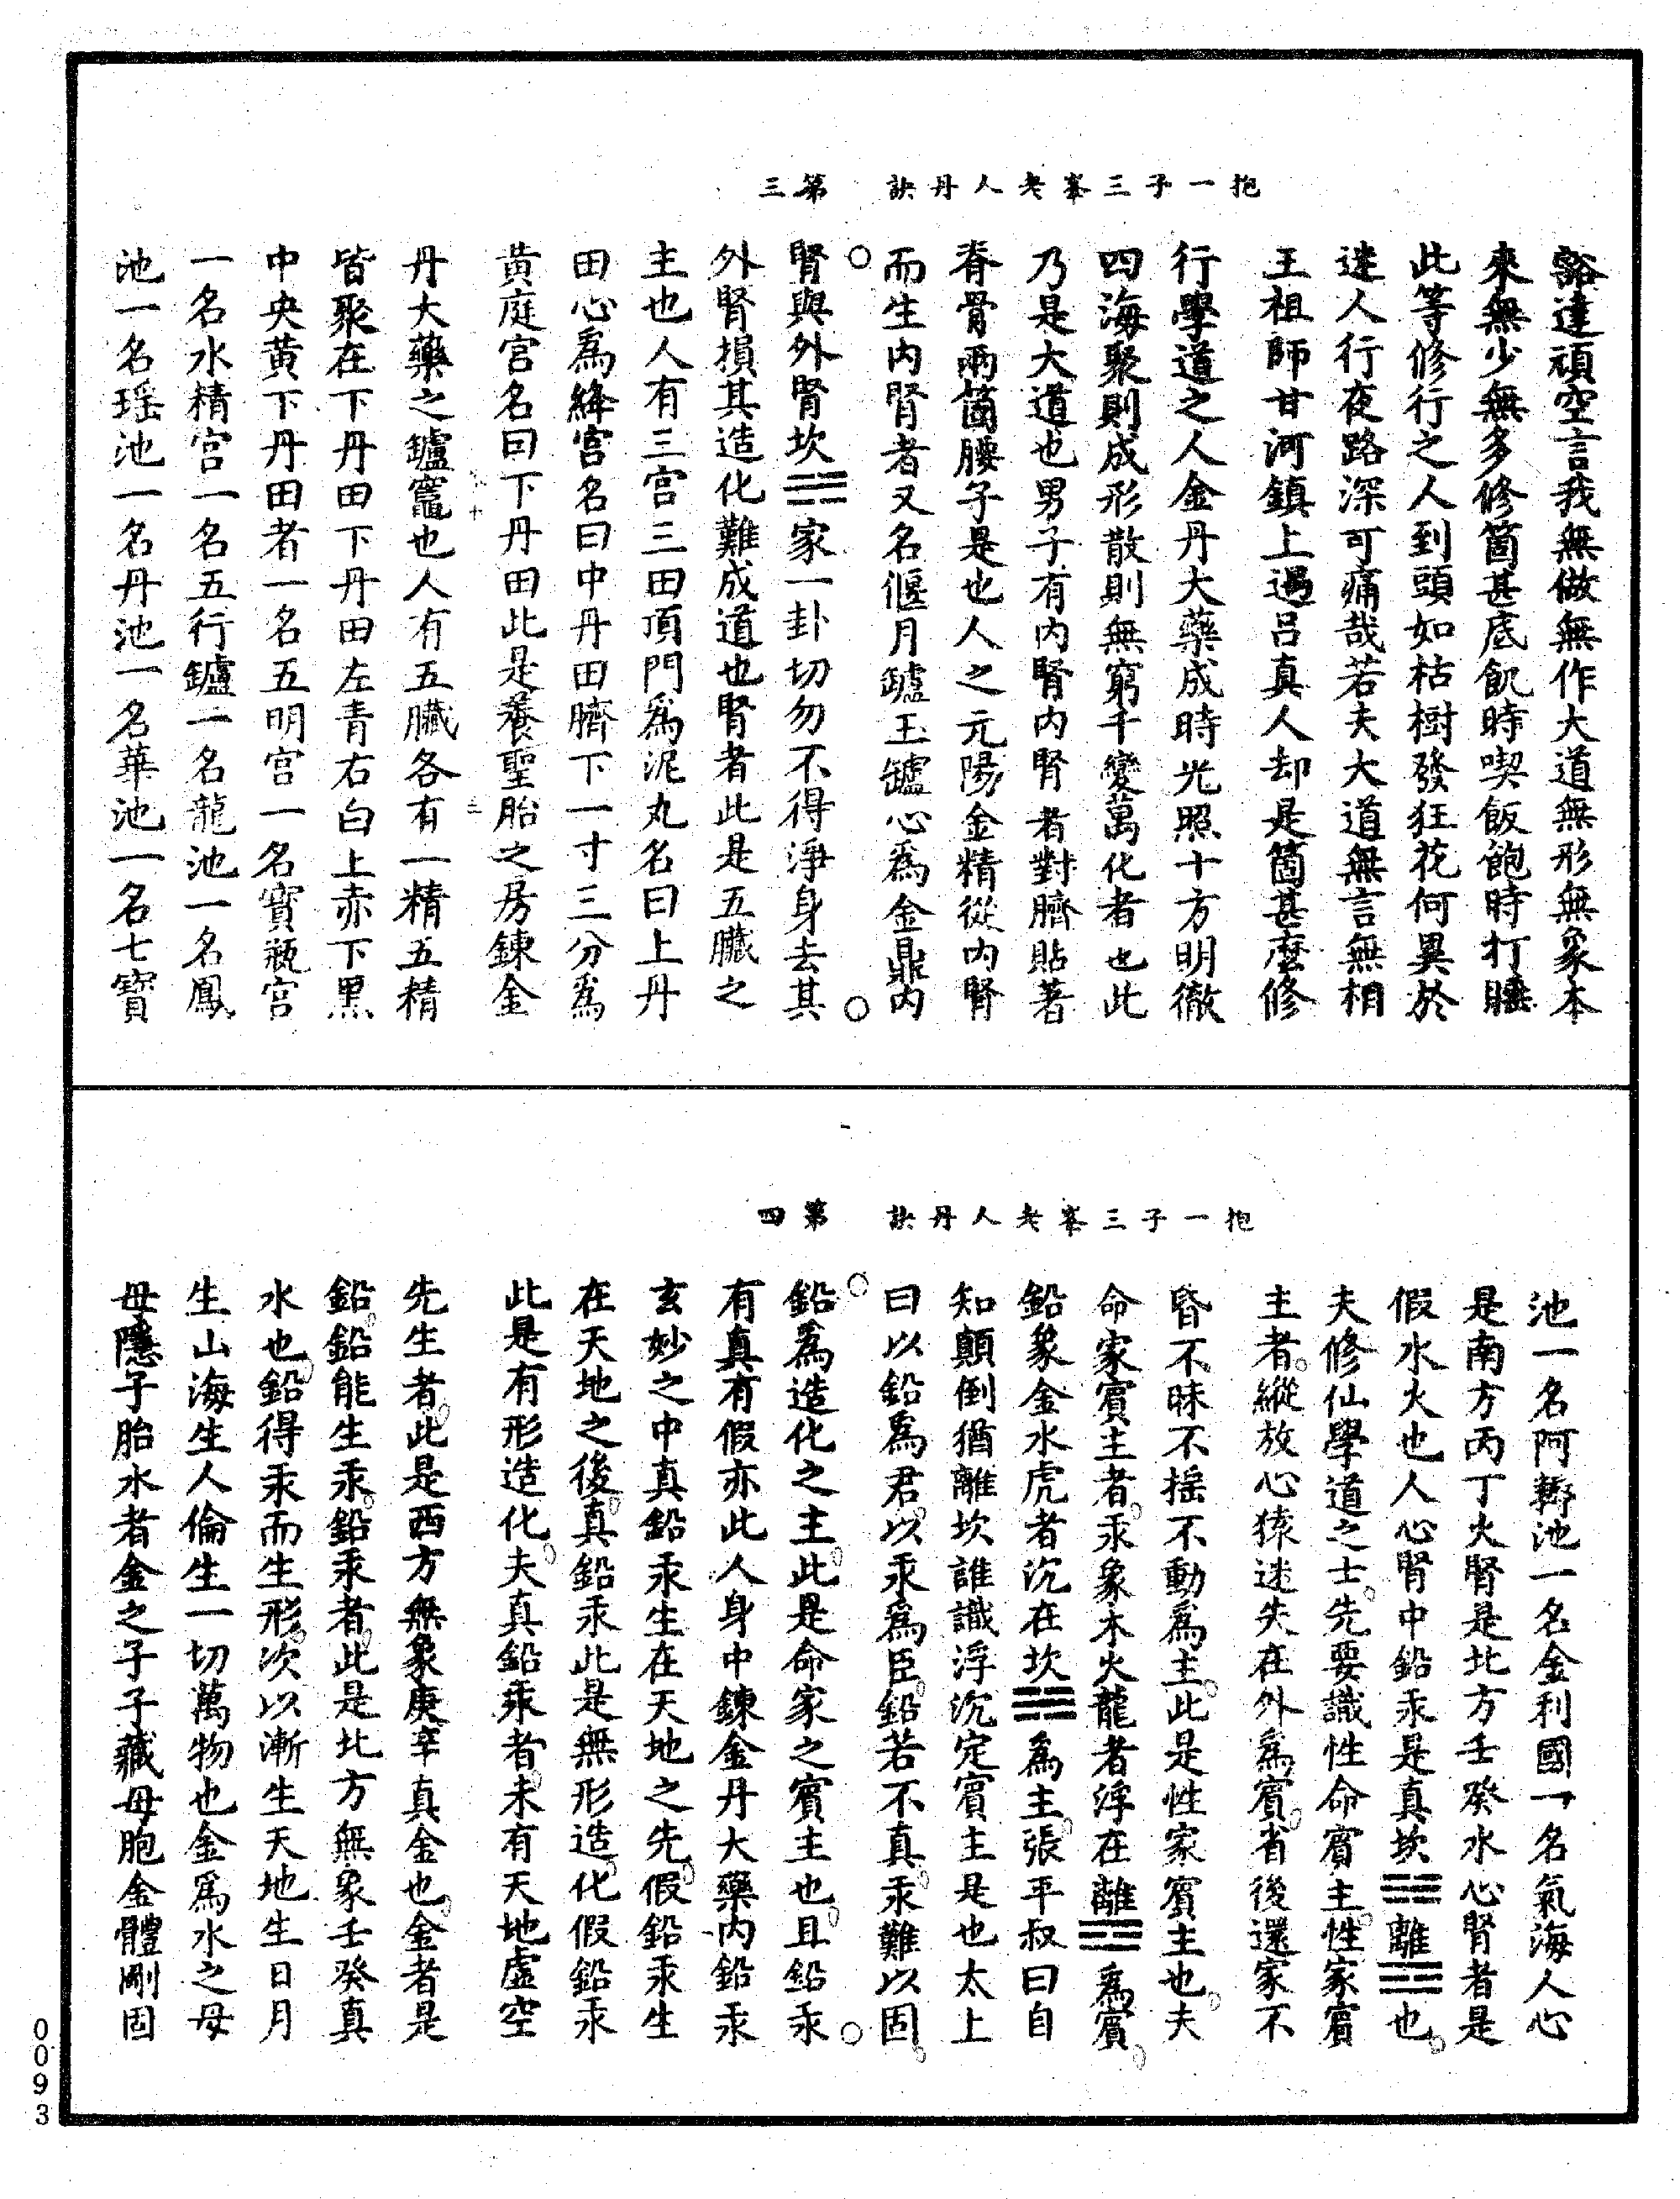 抱一子三峯老人丹訣　第三
豁達頑空言我無做無作大道無形無象本
來無少無多修箇甚底飢時喫飯飽時打睡
此等修行之人到頭如枯樹發狂花何異於
迷人行夜路深可痛哉若夫大道無言無相
王祖師甘河鎮上遇呂真人却是箇甚麼修
行學道之人金丹大藥成時光照十方明徹
四海聚則成形散則無窮千變萬化者也此
乃是大道也男子有內腎內腎者對臍貼著
脊骨兩箇腰子是也人之元陽金精從內腎
而生內腎者又名偃月鑪玉鑪心爲金鼎內
腎與外腎坎☵家一卦切勿不得淨身去其
外腎損其造化難成道也腎者此是五臟之
主也人有三宮三田頂門爲泥丸名曰上丹
田心爲絳宮名曰中丹田臍下一寸三分爲
黃庭宮名曰下丹田此是養聖胎之房鍊金
丹大藥之鑪竈也人有五臟各有一精五精
皆聚在下丹田下丹田左青右白上赤下黑
中央黃下丹田者一名五明宮一名寶瓶宮
一名水精宮一名五行鑪一名龍池一名鳳
池一名瑤池一名丹池一名華池一名七寶
抱一子三峯老人丹訣　第四
池一名阿耨池一名金利國一名氣海人心
是南方丙丁火腎是北方壬癸水心腎者是
假水火也人心腎中鉛汞是真坎☵離☲也
夫修仙學道之士先要識性命賓主性家賓
主者縱放心猿迷失在外爲賓省後還家不
昏不昧不搖不動爲主此是性家賓主也夫
命家賓主者汞象木火龍者浮在離☲爲賓
鉛象金水虎者沉在坎☵爲主張平叔曰自
知顛倒猶離坎誰識浮沉定賓主是也太上
曰以鉛爲君以汞爲臣鉛若不真汞難以固
鉛爲造化之主此是命家之賓主也且鉛汞
有真有假亦此人身中鍊金丹大藥內鉛汞
玄妙之中真鉛汞生在天地之先假鉛汞生
在天地之後真鉛汞此是無形造化假鉛汞
此是有形造化夫真鉛汞者未有天地虛空
先生者此是西方無象庚辛真金也金者是
鉛鉛能生汞鉛汞者此是北方無象壬癸真
水也鉛得汞而生形次以漸生天地生日月
生山海生人倫生一切萬物也金爲水之母
母隱子胎水者金之子子藏母胞金體剛固
0093